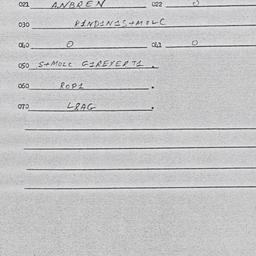 021 ANBREN 022 0
030 PINDINIS+MOLC
040 0 041 0
050 S+MOLC GIREXERTI .
060 ROPI .
070 LRAG .